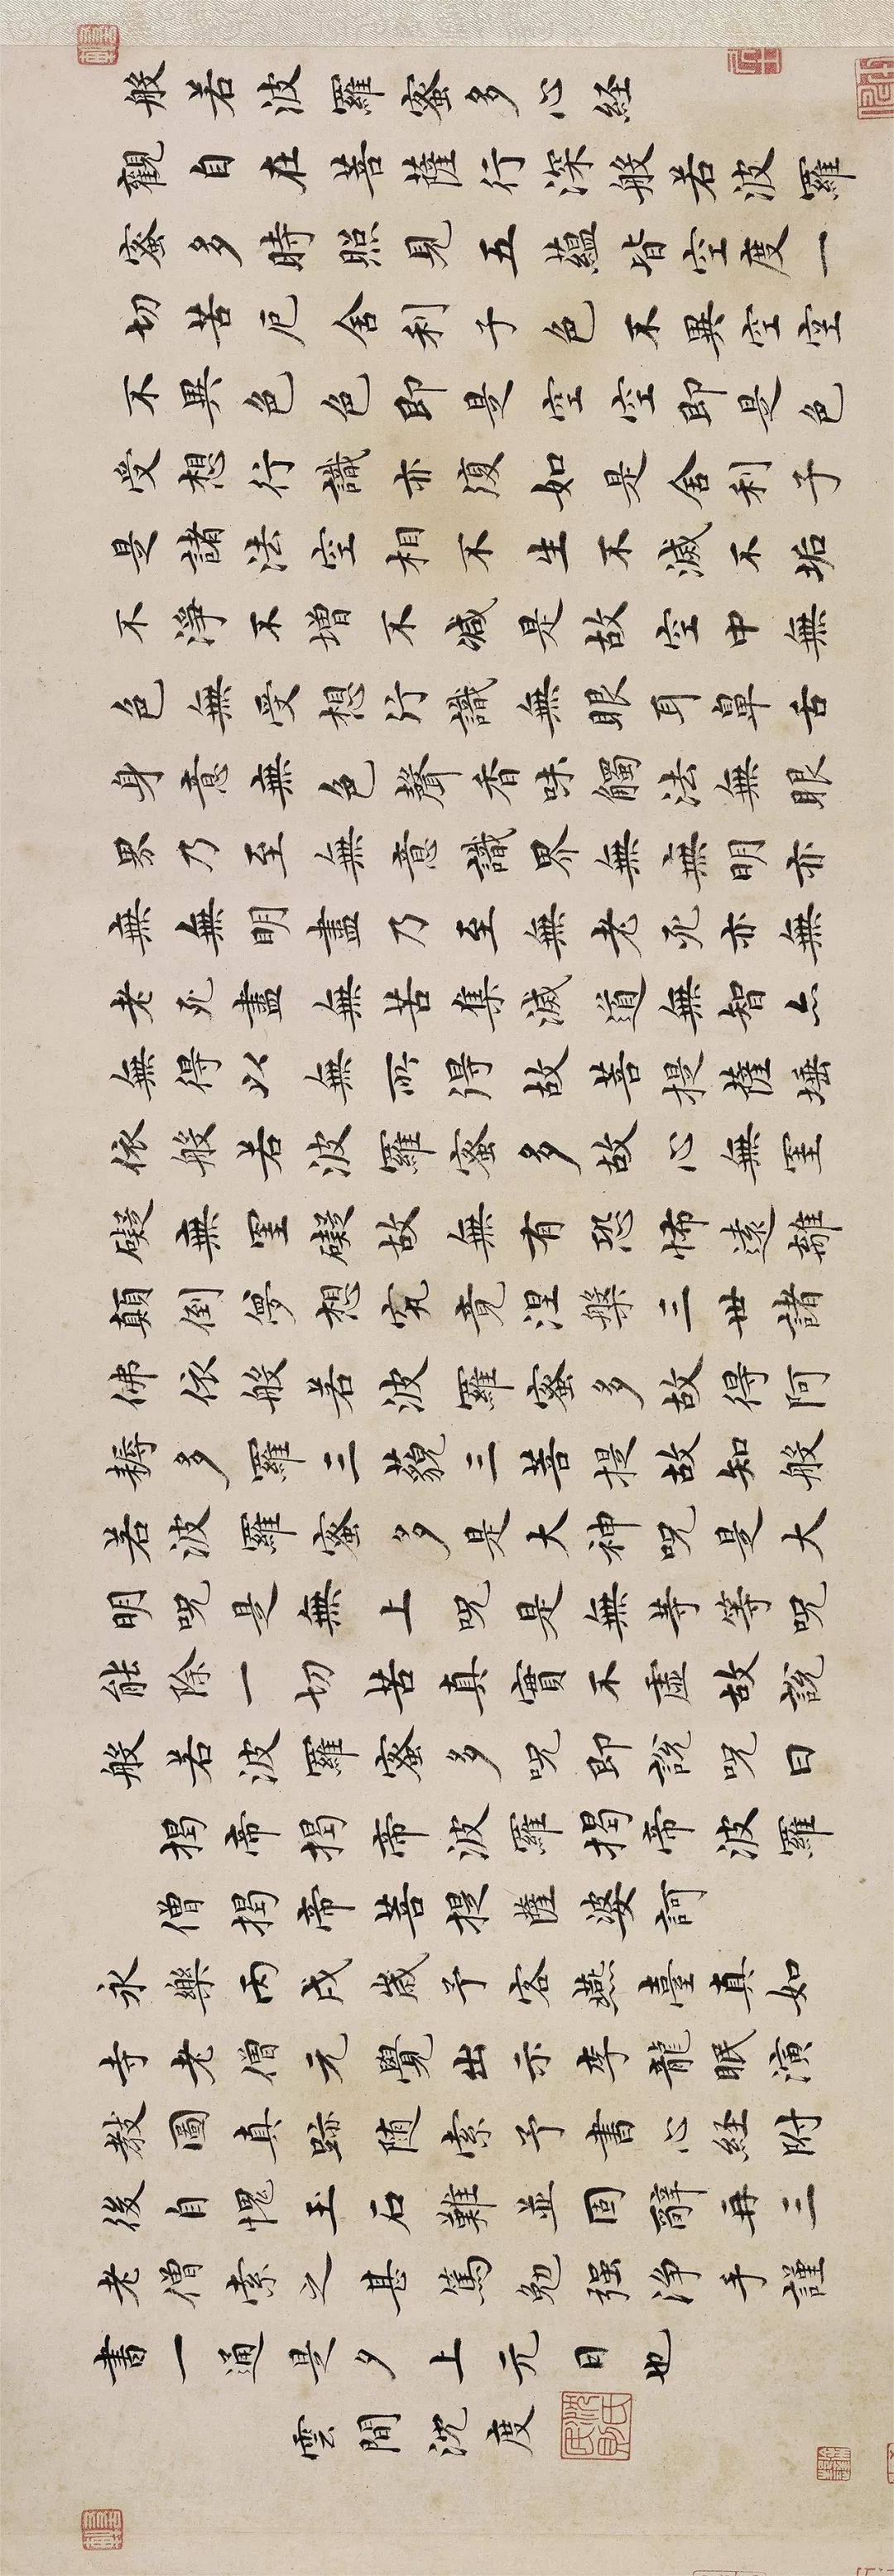 般若波羅蜜多心経
觀自在菩薩行深般若波羅
蜜多時照見五蘊皆空度一
切苦厄舍利子色不異空空
不異色色即是空空即是色
受想行識亦復如是舍利子
是諸法空相不生不滅不垢
不淨不增不減是故空中無
色無受想行識無眼耳鼻舌
身意無色聲香味觸法無眼
界乃至無意識界無無明亦
無無明盡乃至無老死亦無
老死盡無苦集滅道無智亦
無得以無所得故菩提薩埵
依般若波羅蜜多故心無罣
礙無罣礙故無有恐怖遠離
顛倒夢想究竟涅槃三世諸
佛依般若波羅蜜多故得阿
耨多羅三藐三菩提故知般
若波羅蜜多是大神呪是大
明呪是無上呪是無等等呪
能除一切苦真實不虛故說
般若波羅蜜多呪即說呪曰
揭帝揭帝波羅揭帝波羅
僧揭帝菩提薩婆訶
永樂丙戌歲予客燕臺真如
寺老僧元覺出示李龍眠演
教圖真跡隨索予書心経附
後自愧玉石難並固辭再三
老僧索之甚篤勉强淨手謹
書一通是夕上元日也
雲間沈度